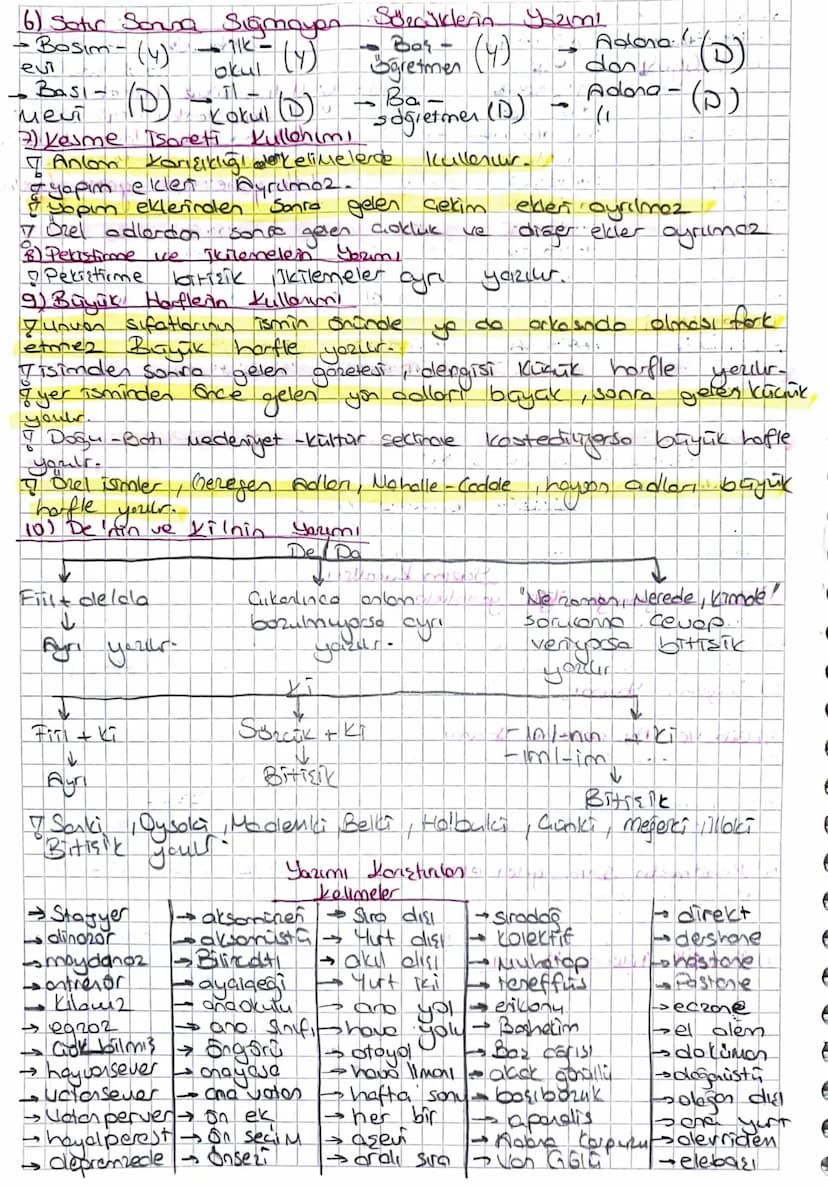 6) Satır Sonuna Sığmayan Sözcüklerin Yazımı
→ Basım- (Y) → İlk- (Y) → Baş- (Y) → Adana'- (D)
evi okul öğretmen dan
→ Bası- (D) → İl- (D) → Ba- (D) → Adana- (D)
mevi kokul şöğretmen
7) Kesme İşareti Kullanımı
Anlam Karışıklığı kelimelerde kullanılır.
yapım ekleri Ayrılmaz.
Yapım eklerinden sonra gelen çekim ekleri ayrılmaz
Özel adlardan sonra gelen çokluk ve diğer ekler ayrılmaz
8) Pekiştirme ve İkilemelerin Yazımı
Pekiştirme bitişik, ikilemeler ayrı yazılır.
9) Büyük Harflerin Kullanımı
Unvan sıfatlarının ismin önünde ya da arkasında olması fark
etmez Büyük harfle yazılır.
isimden sonra gelen gazetesi, dergisi küçük harfle yazılır.
yer isminden önce gelen yön adları büyük, sonra gelen küçük
yazılır.
Doğu-Batı medeniyet-kültür şeklinde kastediliyorsa büyük harfle
yazılır.
Özel isimler, Gezegen Adları, Mahalle-Cadde, hayvan adları büyük
harfle yazılır.
10) De'nin ve Ki'nin Yazımı
De/Da
Fiil + de/da
Ayrı yazılır.
Çıkarılınca anlam
bozulmuyorsa ayrı
yazılır.
"Ne zaman, Nerede, Kimde"
sorusuna cevap
veriyorsa bitişik
yazılır
Ki
Fiil + Ki
Ayrı
Sözcük + Ki
Bitişik
-ın/-nın + Ki
-ım/-im ...
Bitişik
Sanki, Oysaki, Mademki, Belki, Halbuki, Çünkü, meğerki, illaki
Bitişik yazılır.
Yazımı Karıştırılan
Kelimeler
→ Stajyer → akşamüstü → Sıra dışı → sıradağ → direkt
→ dinozor → Yurt dışı → kolektif → dershane
→ maydanoz → Bilirkişi → akıl dışı → Muhatap → hastane
→ antrenör → Yurt içi → teneffüs → Postane
→ Kılavuz → anaokulu → ana yol → eczane
→ egzoz → ana sınıfı → hava yolu → el âlem
→ Çok bilmiş → öngörü → otoyol → doküman
→ hayvansever → anayasa → hava limanı → doğaüstü
→ vatansever → ana vatan → hafta sonu → başıbozuk → olağan dışı
→ Vatanperver → ön ek → her bir → ana yurt
→ hayalperest → ön seçim → aşevi → alevriden
→ depremzede → önsezi → aralı sıra → Van Gölü → elebaşı